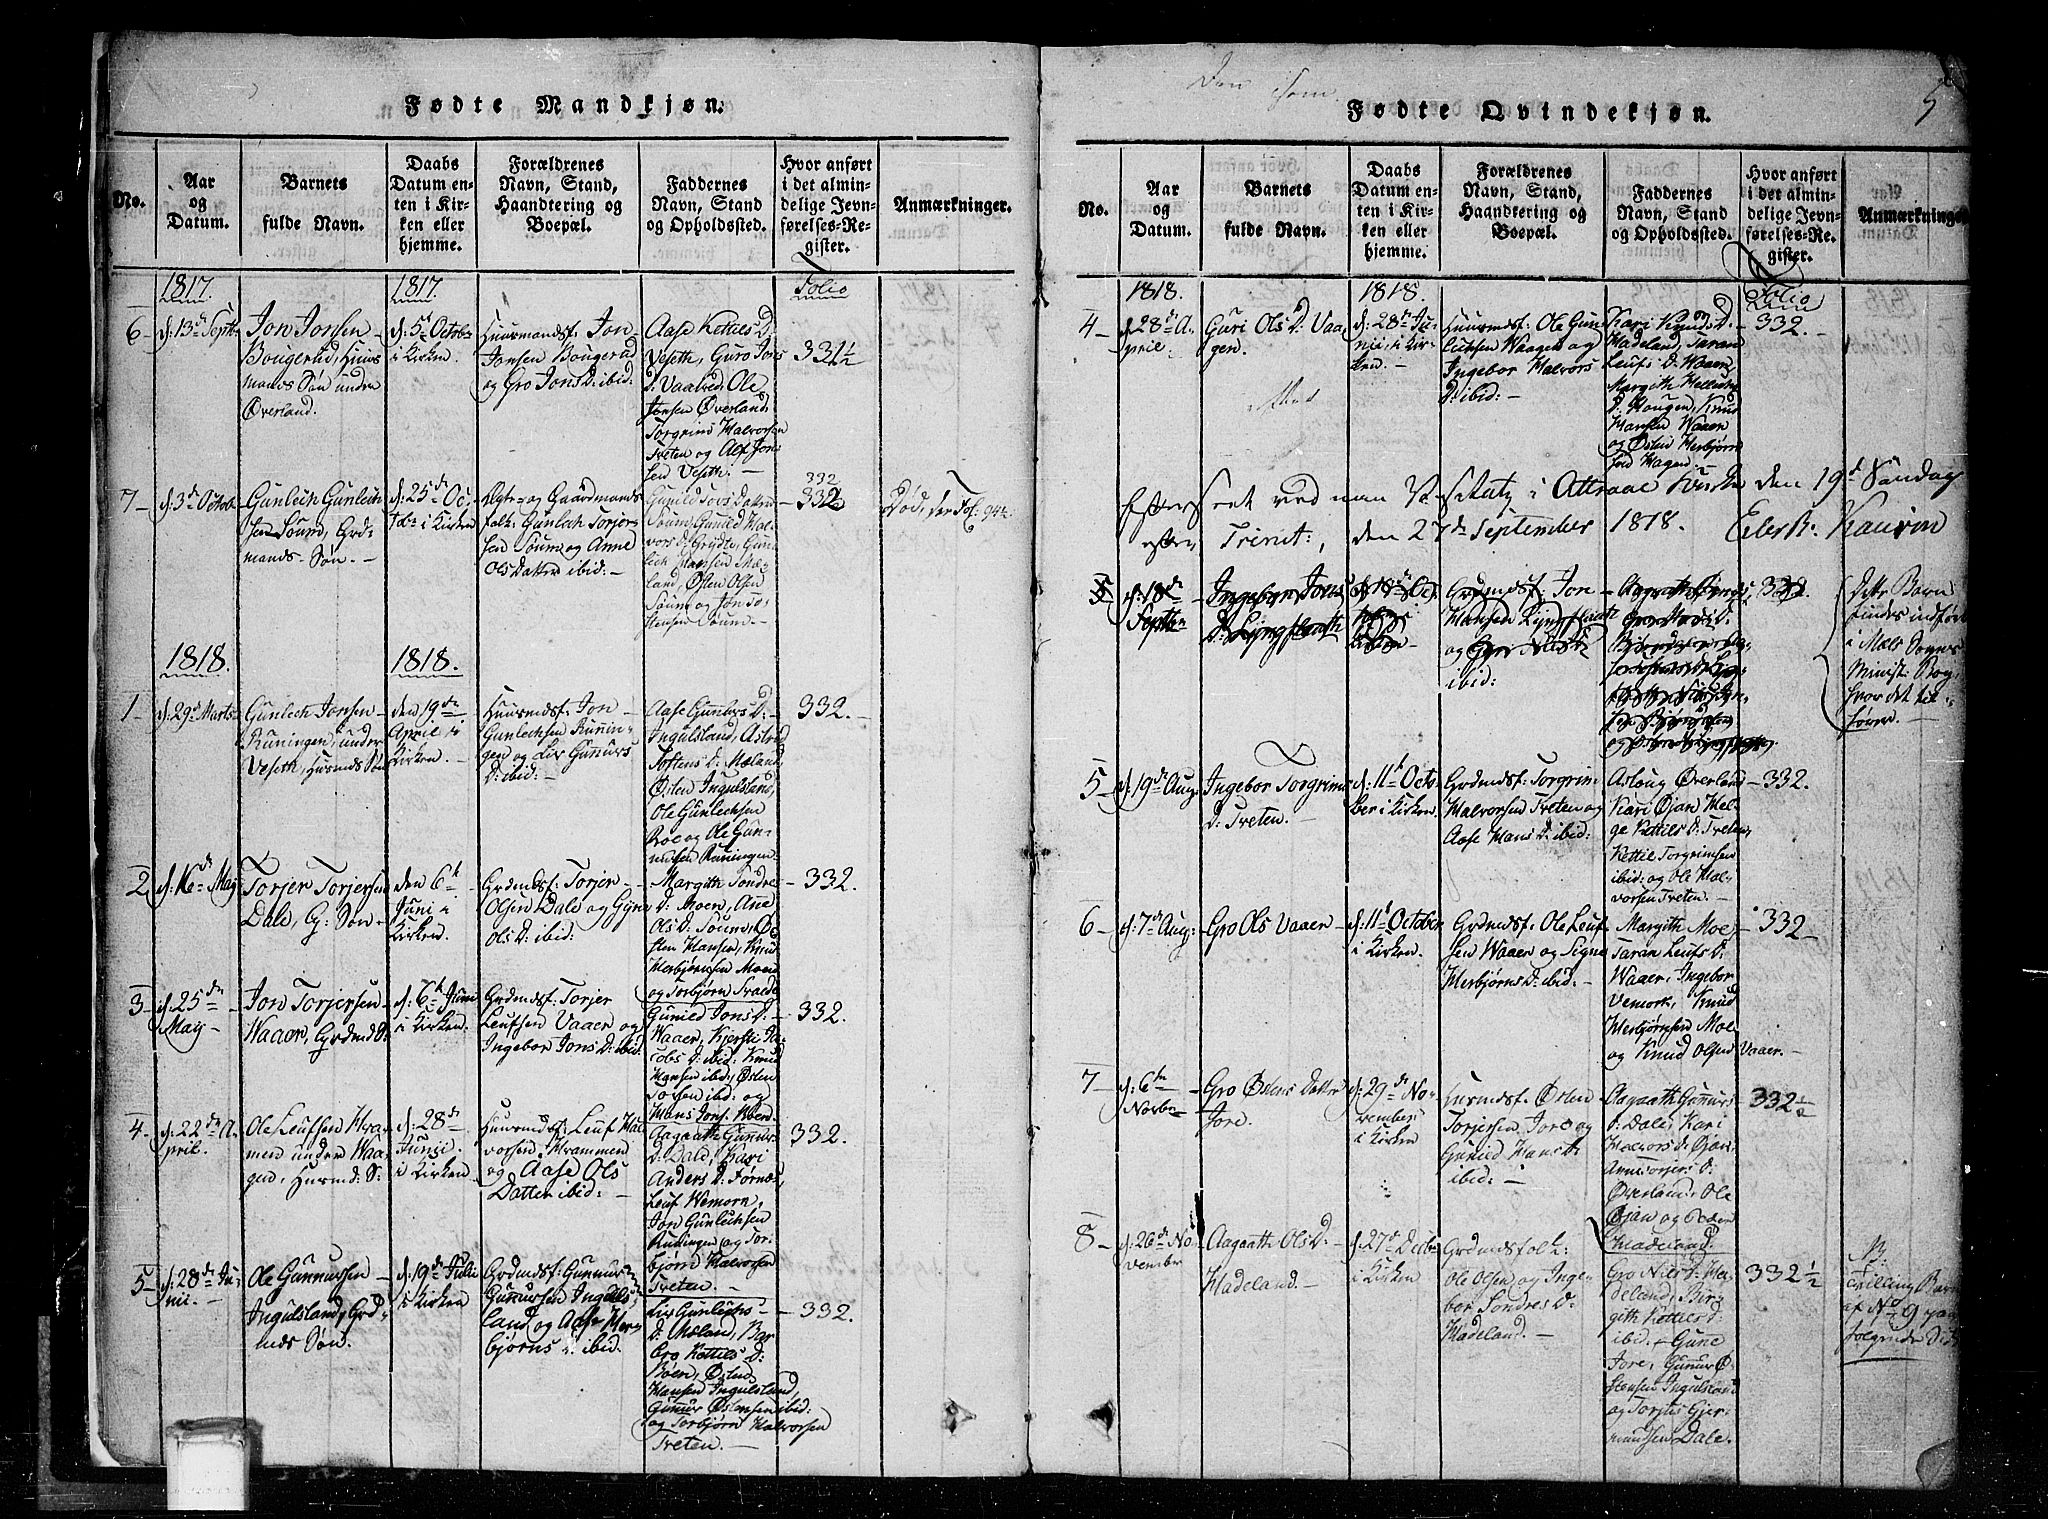 Fødte Mandkjøn.
No.
Aar
og
Datum.
Barnets
fulde Navn.
Daabs
Datum en-
ten i Kir-
ken eller
hjemme.
Forældrenes
Navn, Stand,
Haandtering og
Boepæl.
Faddernes
Navn, Stand
og Opholdssted.
Hvor anført
i det almin-
delige Jevn-
førelses-Re-
gister.
Anmærkninger.
1817.
1817.
Folio
6
d: 13de Septbr
Jon Jonsen
Bougerud, Huus
mands Søn under
Øverland.
d: 5te Octob:
i Kirken.
Huusmandsf: Jon
Jonsen Bougerud
og Gro Jons D: ibid:
Aase Kettels D:
Veseth, Guro Jons
D: Vaalred, Ole
Jonsen Øverland,
Torgrim Halvorsen
Tveten og Alf Jon
sen Veseth. —
331½
7
d: 3de Octob:
Gunleich Gunleich
sen Soum, Grd-
mands-Søn. —
d: 25de Oc-
tob: i Kirken.
Ægte- og Gaardmands
folk: Gunlech Torjer-
sen Soum og Anne
Ols Datter ibid: —
Gunild Tovs Datter
Soum, Gunild Hal-
vors D: Grydte, Gun-
lech Hansen Mæ-
land, Østen Olsen
Soum og Jon To-
stensen Soum. —
332
332
Død, see Fol: 94
1818.
1818.
1
d: 29de Marts
Gunlech Jonsen
Runingen, under
Veseth, Husmds Søn
den 19de
April i
Kirken. —
Huusmdsf: Jon
Gunlechsen Runin-
gen og Liv Gunnurs
D: ibid: —
Aase Gunurs D: —
Ingulsland, Astrid
Toftens D: Mæland
Østen Ingulsland,
Ole Gunlechsen
Roe og Ole Gun-
nursen Runingen.
332. —
2
d: 16de May
Torjer Torjersen
Dale, G: Søn
den 6te
Juni i
Kirken.
Grdmdsf: Torjer
Olsen Dale og Gyro
Ols D: ibid:
Margith Sondre
D: Moen, Ane
Ols D: Soum, Ø-
sten Hansen, Knud
Herbjørnsen Moen
og Torbjørn Svalde
332.
3
d: 25de
May
Jon Torjersen
Waaer, Grdmds S:
d: 6te Juni
i Kirken.
Grdmdsf: Torjer
Leufsen Vaaer og
Ingebor Jons D: ibid
Gunild Jons D:
Waaer, Kjersti Ja-
cobs D: ibid: Knud
Hansen ibid, Østen
Torsen ibid: og
Hans Jons: Boen
332.
4
d: 22de A-
pril.
Ole Leufsen Kra-
men under Waa-
gen, Husmd: S:
d: 28de
Juni
i Kirken
Huusmdsf: Leuf Hal
vorsen Krammen
og Aase Ols
Datter ibid: —
Aagaath Gunnurs
D: Dale, Kari
Anders D: Førnes,
Leuf Wemorn,
Jon Gunlechsen
Runingen og Tor-
bjørn Halvorsen
Tveten. —
332.
5
d: 28de Ju-
nii. —
Ole Gunnursen
Ingulsland, Grd-
mds Søn.
d: 19de Julii
i Kirken
Grdmdsf: Gunnur
Gunnursen Inguls
land og Aase Her-
bjørns D: ibid.
Liv Gunlechs-
D: Mæland, Bar
bro Kettils D:
Bøen, Østen
Hansen Ingulsland,
Gunnur Østensen ibid:
og Torbjørn Halvorsen
Tveten. —
332.
Den som
5
Fødte Qvindekjøn.
No.
Aar
og
Datum.
Barnets
fulde Navn.
Daabs
Datum en-
ten i Kir-
ken eller
hjemme.
Forældrenes
Navn, Stand,
Haandtering og
Boepæl.
Faddernes
Navn, Stand
og Opholdssted.
Hvor anført
i det almin-
delige Jevn-
førelses-Re-
gister.
Anmærkninger
1818.
1818.
Folio
4
d: 28de A-
pril.
Guri Ols D: Vaa
gen.
d: 28de Ju-
nii, i Kir-
ken. —
Huusmdsf: Ole Gun
lechsen Waagen og
Ingebor Halvors
D: ibid: —
Kari Knuds D:
Hadeland, Taran
Leufs D: Waaer,
Margith
D: Hougen, Knud
Hansen Waaer
og Østen Herbjørn
sen Hagen
332.
Efterseet ved min Visitatz i Attraae Kirke den 19de Søndag
efter Trinit:, den 27de September 1818. Eilert K: Kaurin
5
d: 18de
Septbr
Ingebor Jons
D: Lyngflaath
d: 18de Oc
Kirken
Grdmdsf: Jon
Hansen Lyngflaath
og
ibid:
332
Dette Barn
findes indført
i Mæls Sogns
Minist: Bog,
hvor det til-
hører. —
5
d: 19de Aug:
Ingebor Torgrims
D: Tveten. —
d: 11te Octo
ber i Kirken.
Grdmdsf: Torgrim
Halvorsen Tveten og
Aase Hans D: ibid:
Aslaug Øverland
Kari Øjan, Hel-
ge Kettils D: Tveten,
Kettil Torgrimsen
ibid: og Ole Hal-
vorsen Tveten. —
332.
6
d: 7de Aug:
Gro Ols Vaaer
d: 11te October
i Kirken.
Grdmdsf: Ole Leuf-
sen Waaer og Signe
Herbjørns D: ibid.
Margith Moe
Taran Leufs D:
Waaer, Ingebor
Vemork, Knud
Herbjørnsen Moe
og Knud Olsen Vaaer. —
332
7
d: 6te
Novbr
Gro Østens Datter
Jore.
d: 29de No-
vember
i Kirken
Husmdsf: Østen
Torjersen, Jore og
Gunild Hans D:
ibid: —
Aagaath Gunnurs
D: Dale, Kari
Halvors D: Øjan,
Anne Torjers D:
Øverland, Ole
Øjan og Peder
Hadeland.
332½
8
d: 26de No
vembr
Aagaath Ols D:
Hadeland. —
d: 27de Decbr
i Kirken
Grdmdsfolk:
Ole Olsen og Inge-
bor Sondres D:
Hadeland. —
Gro Nils D: Ha-
deland, Bir-
gith Kettils D:
ibid. Gune
Jore, Gunnur Ø-
stensen Ingulsland
og Torstis Gjer-
mundsen Dale.
332½
N:
Tvilling Barn
af No 9 paa
følgende Side